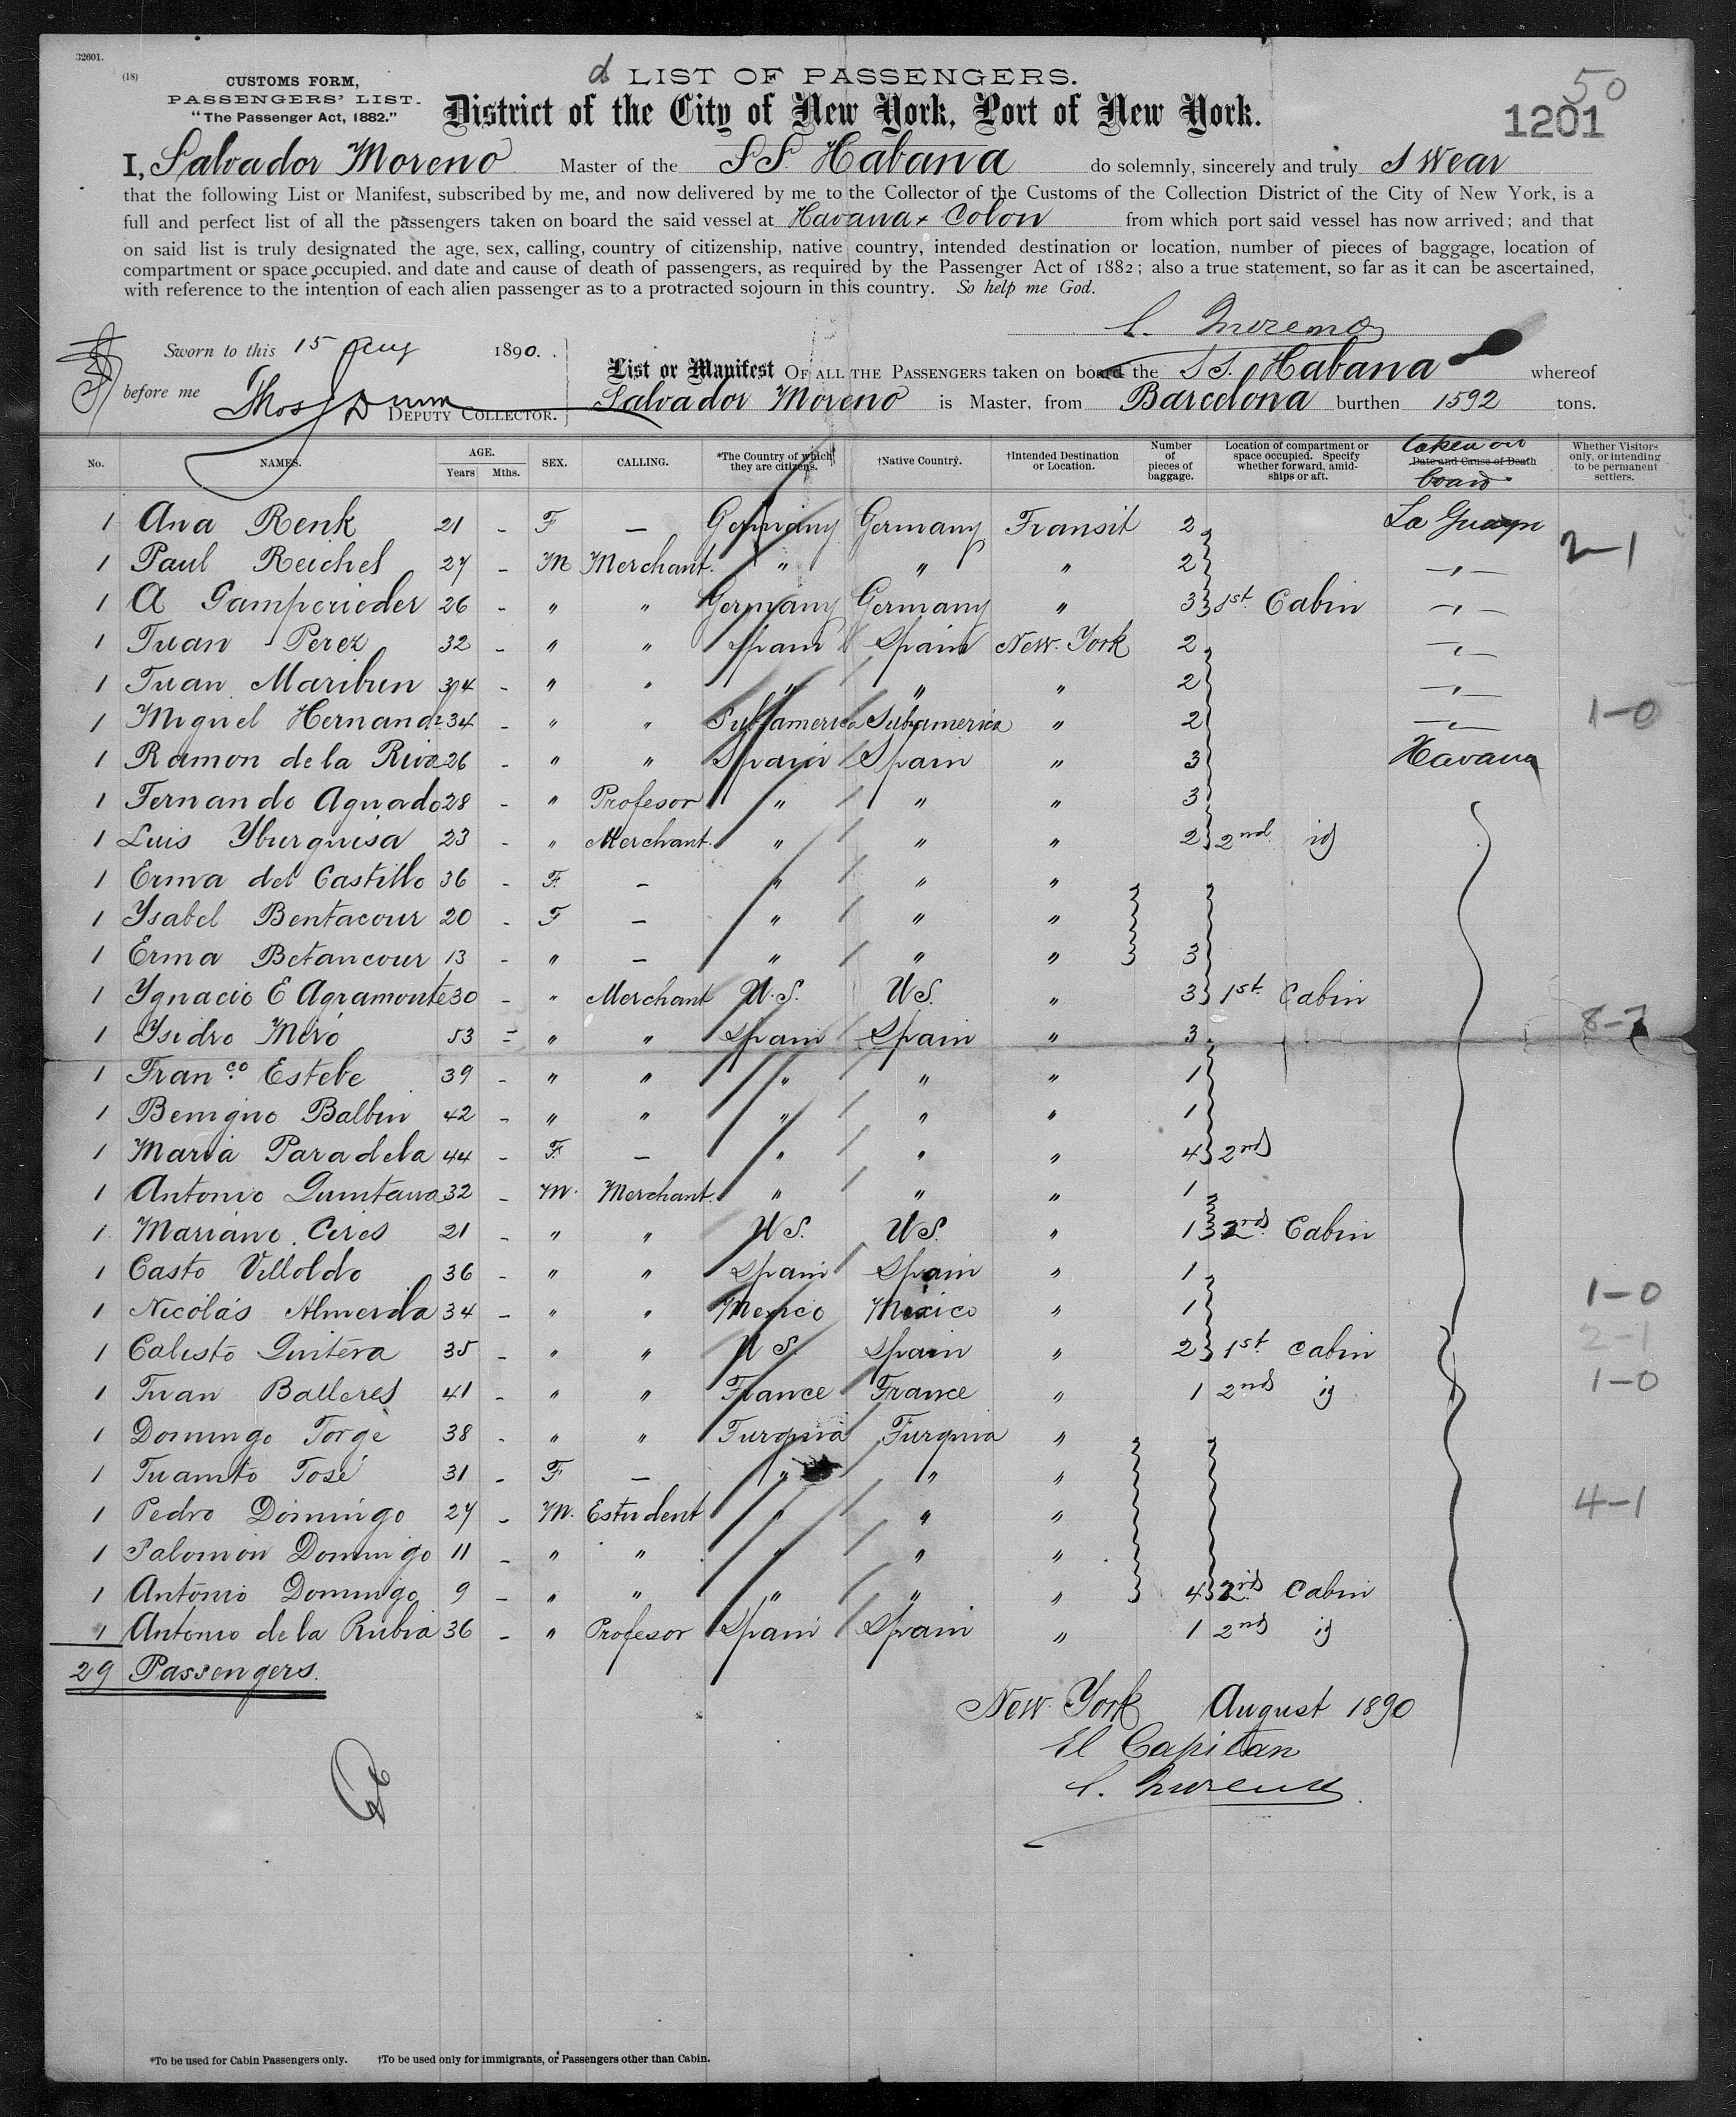 32601.
(18)
50
1201
CUSTOMS FORM,
PASSENGERS' LIST.
"The Passenger Act, 1882."
LIST OF PASSENGERS.
District of the City of New York, Port of New York.
I, Salvador Moreno Master of the SS. Habana do solemnly, sincerely and truly swear
that the following List or Manifest, subscribed by me, and now delivered by me to the Collector of the Customs of the Collection District of the City of New York, is a
full and perfect list of all the passengers taken on board the said vessel at Havana + Colon from which port said vessel has now arrived; and that
on said list is truly designated the age, sex, calling, country of citizenship, native country, intended destination or location, number of pieces of baggage, location of
compartment or space occupied, and date and cause of death of passengers, as required by the Passenger Act of 1882; also a true statement, so far as it can be ascertained,
with reference to the intention of each alien passenger as to a protracted sojourn in this country. So help me God.
S. Moreno
Sworn to this 15 Aug 1890.
before me Thos J Dunn DEPUTY COLLECTOR.
List or Manifest OF ALL THE PASSENGERS taken on board the SS. Habana whereof
Salvador Moreno is Master, from Barcelona burthen 1592 tons.
No. NAMES. AGE. Years Mths. SEX. CALLING. *The Country of which they are citizens. †Native Country. †Intended Destination or Location. Number of pieces of baggage. Location of compartment or space occupied. Specify whether forward, amidships or aft. Date and Cause of Death taken on board Whether Visitors only, or intending to be permanent settlers.
1 Ana Renk 21 - F - Germany Germany Transit 2 La Guayra
1 Paul Reichel 27 - M Merchant. " " " 2 -"- 2-1
1 A Gamperieder 26 - " " Germany Germany " 3 1st. Cabin -"-
1 Juan Perez 32 - " " Spain Spain New York 2 -"-
1 Juan Maribun 34 - " " " " " 2 -"-
1 Miguel Hernandz 34 - " " Sudamerica Sudamerica " 2 -"- 1-0
1 Ramon de la Riva 26 - " " Spain Spain " 3 Havana
1 Fernando Aguado 28 - " Profesor " " " 3
1 Luis Yburguisa 23 - " Merchant. " " " 2 2nd id
1 Erma del Castillo 36 - F. - " " "
1 Ysabel Bentacour 20 - F - " " "
1 Erma Betancour 13 - " - " " " 3
1 Ygnacio E Agramonte 30 - " Merchant U.S. US. " 3 1st. Cabin
1 Ysidro Miró 53 - " " Spain Spain " 3 8-7
1 Franco. Estebe 39 - " " " " " 1
1 Benigno Balbin 42 - " " " " " 1
1 Maria Paradela 44 - F. - " " " 4 2nd
1 Antonio Quintana 32 - M. Merchant. " " " 1
1 Mariano Ceres 21 - " " US. US. " 1 2nd Cabin
1 Casto Villoldo 36 - " " Spain Spain " 1
1 Nicolás Almeida 34 - " " Mexico Mexico " 1 1-0
1 Calisto Quitera 35 - " " U S. Spain " 2 1st. Cabin 2-1
1 Juan Balleres 41 - " " France France " 1 2nd id 1-0
1 Domingo Jorge 38 - " " Turquia Turquia "
1 Juanito José 31 - F - " " "
1 Pedro Domingo 27 - M. Estudent " " " 4-1
1 Salomon Domingo 11 - " " " " "
1 Antonio Domingo 9 - " " " " " 4 2nd Cabin
1 Antonio de la Rubia 36 - " Profesor Spain Spain " 1 2nd id
29 Passengers.
New York August 1890
El Capitan
S. Moreno
*To be used for Cabin Passengers only. †To be used only for immigrants, or Passengers other than Cabin.